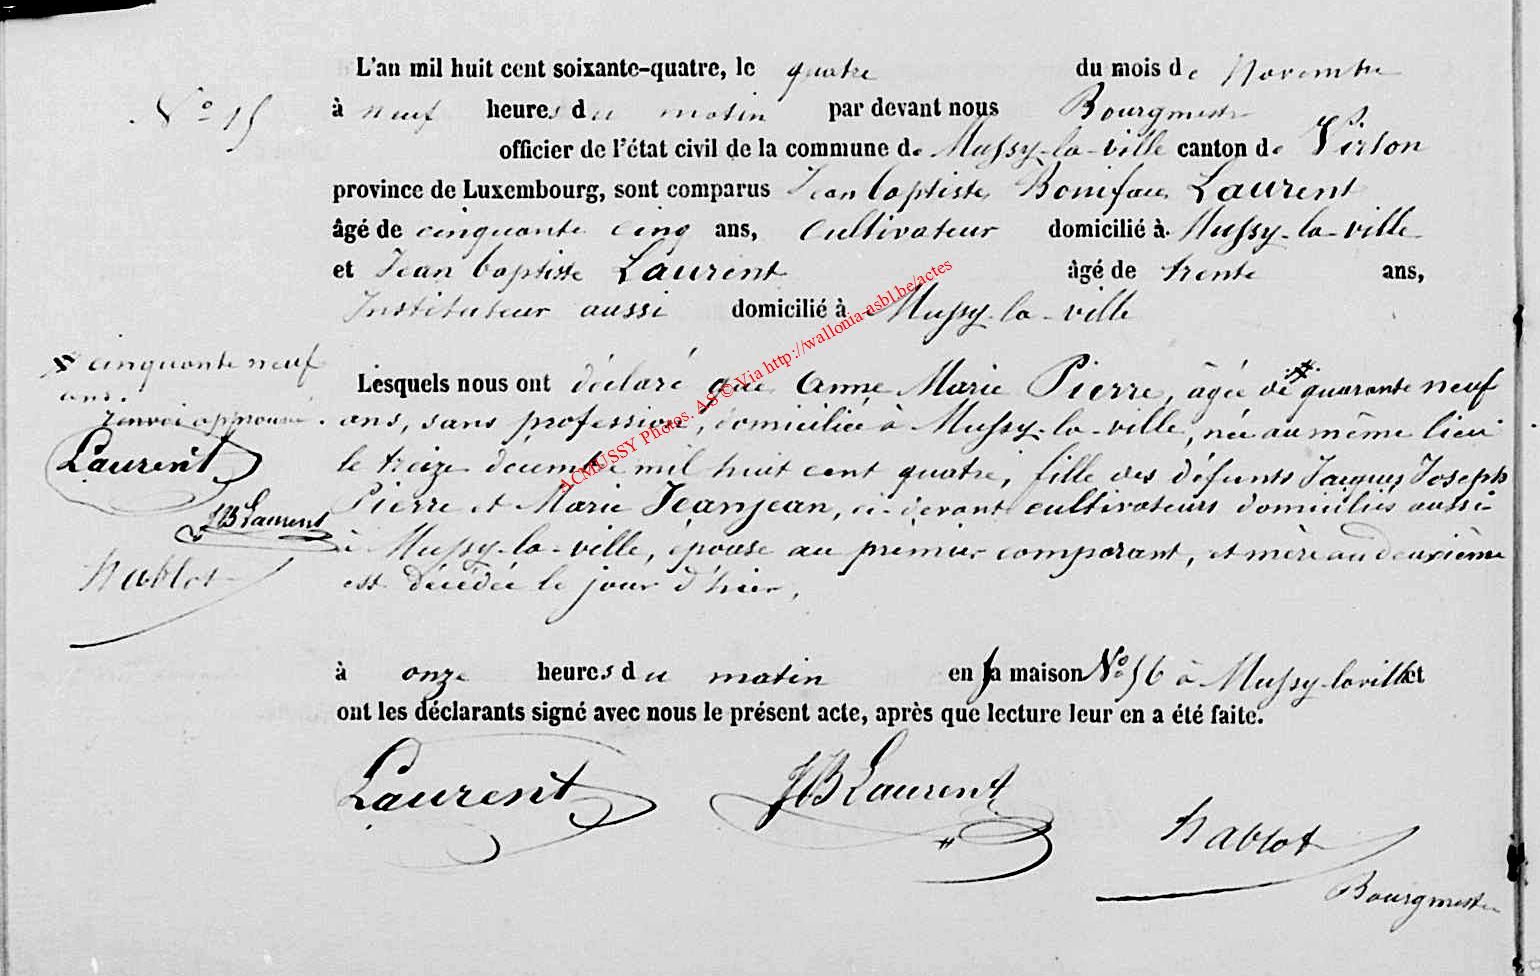 L'an mil huit cent soixante-quatre, le quatre du mois de Novembre
N° 15
à neuf heures du matin par devant nous Bourgmestre
officier de l'état civil de la commune de Mussy-la-ville canton de Virton
province de Luxembourg, sont comparus Jean baptiste Boniface Laurent
âgé de cinquante cinq ans, Cultivateur domicilié à Mussy-la-ville
et Jean baptiste Laurent âgé de trente ans,
Instituteur aussi domicilié à Mussy-la-ville
Lesquels nous ont déclaré que Anne Marie Pierre, âgée de quarante neuf
ans, sans profession, domiciliée à Mussy-la-ville, née au même lieu
le treize décembre mil huit cent quatre, fille des défunts Jacques Joseph
Pierre et Marie Jeanjean, ci-devant cultivateurs domiciliés aussi
à Mussy-la-ville, épouse au premier comparant, et mère au deuxième
est décédée le jour d'hier,
à onze heures du matin en sa maison N° 56 à Mussy-la-ville et
ont les déclarants signé avec nous le présent acte, après que lecture leur en a été faite.
Laurent JB Laurent
hablot
Bourgmestre
cinquante neuf
ans.
renvoi approuvé.
Laurent
JB Laurent
hablot
ACMUSSY Photos. AS © Via http://wallonia-asbl.be/actes